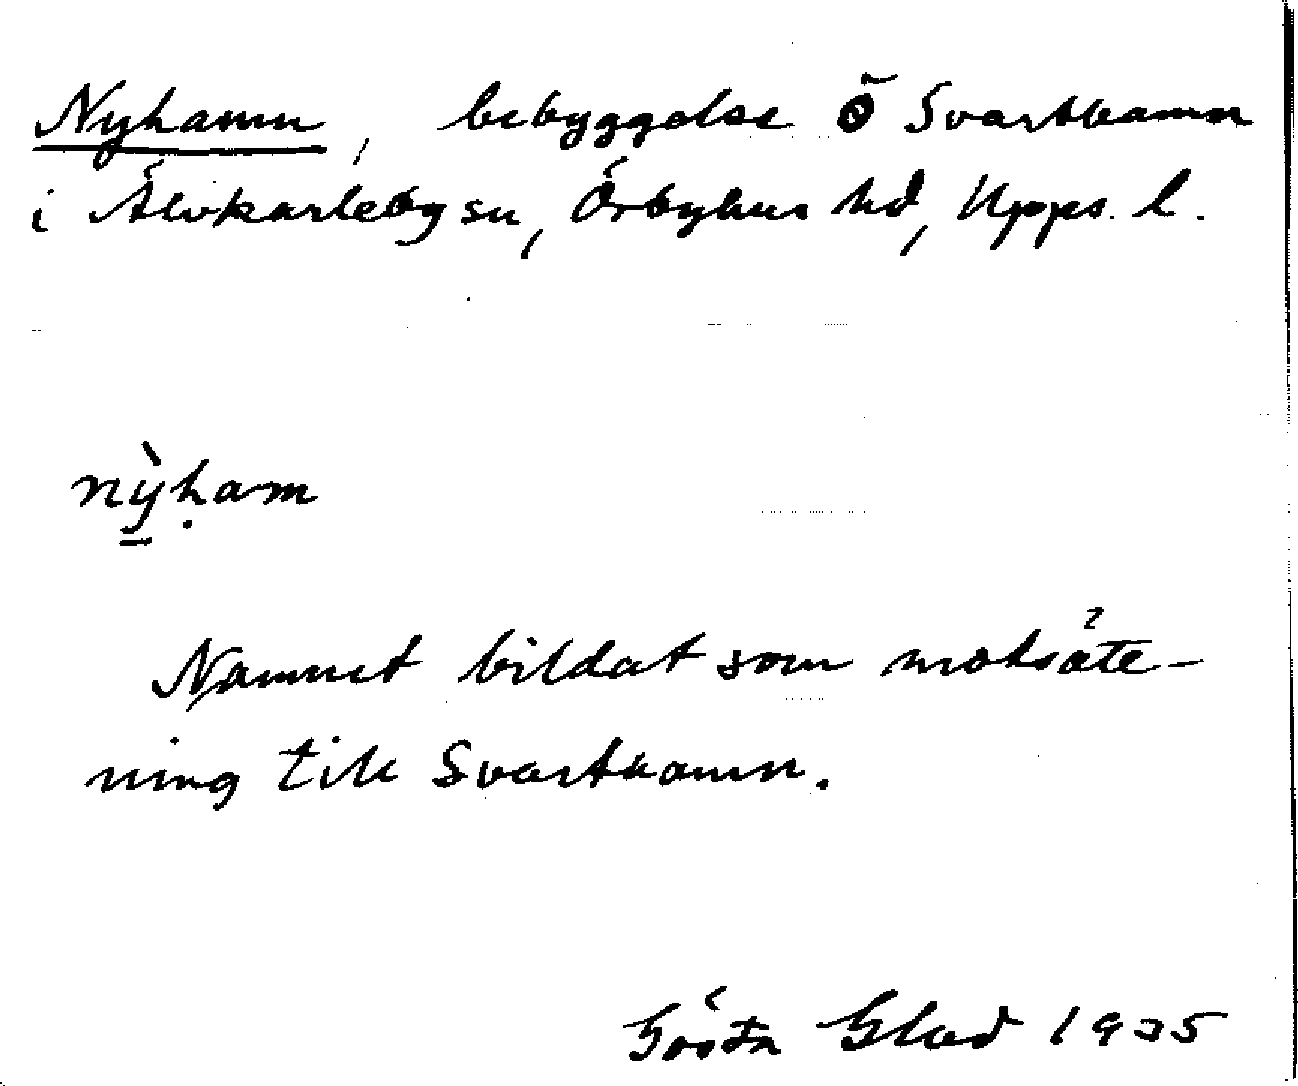 Nyhamn, bebyggelse ö Svarthamn
i Älvkarleby sn, Örbyhus hd, Upps. l.
nỳḥam
Namnet bildat som motsäte-
ning till Svarthamn.
Gösta Glad 1935